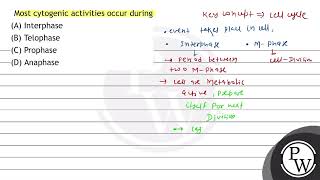 Most cytogenic activities occur during
(A) Interphase
(B) Telophase
(C) Prophase
(D) Anaphase
Key concept ⇒ cell cycle
• event take place in cell,
• Interphase • M-phase
→ Period between cell-Division
two M-Phase
→ cell are Metabolic
active, prepare
itself for next
Division
PW